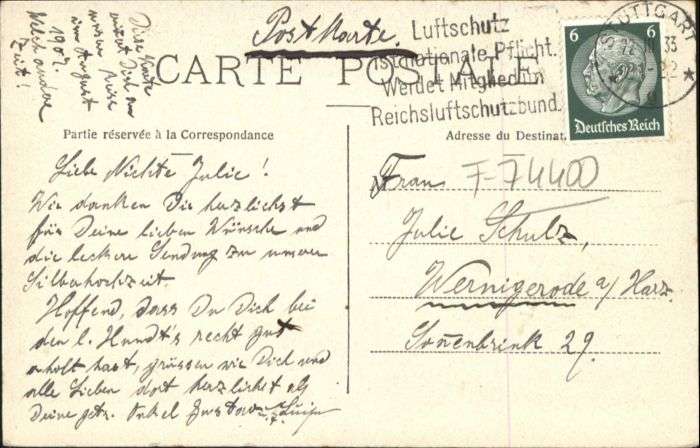 Diese Karte
meint Dich an
unsere Reise
im August
1907.
Welch andere
Zeit!
Postkarte.
Luftschutz
ist nationale Pflicht.
Werdet Mitglied im
Reichsluftschutzbund.
STUTTGART
6 6
Deutsches Reich
CARTE POSTALE
Partie réservée à la Correspondance
Adresse du Destinat
Liebe Nichte Julie!
Wir danken Dir herzlichst
für Deine lieben Wünsche und
die leckere Sendung zu unserer
Silberhochzeit.
Hoffend, dass Du Dich bei
den l. Hundt's recht gut
erholt hast, grüssen wir Dich und
alle Lieben dort herzlichst als
Deine getr. Onkel Gustav u. Luise
Frau
7-74400
Julie Schulz,
Wernigerode a/Harz.
Sonnenbrink 29.